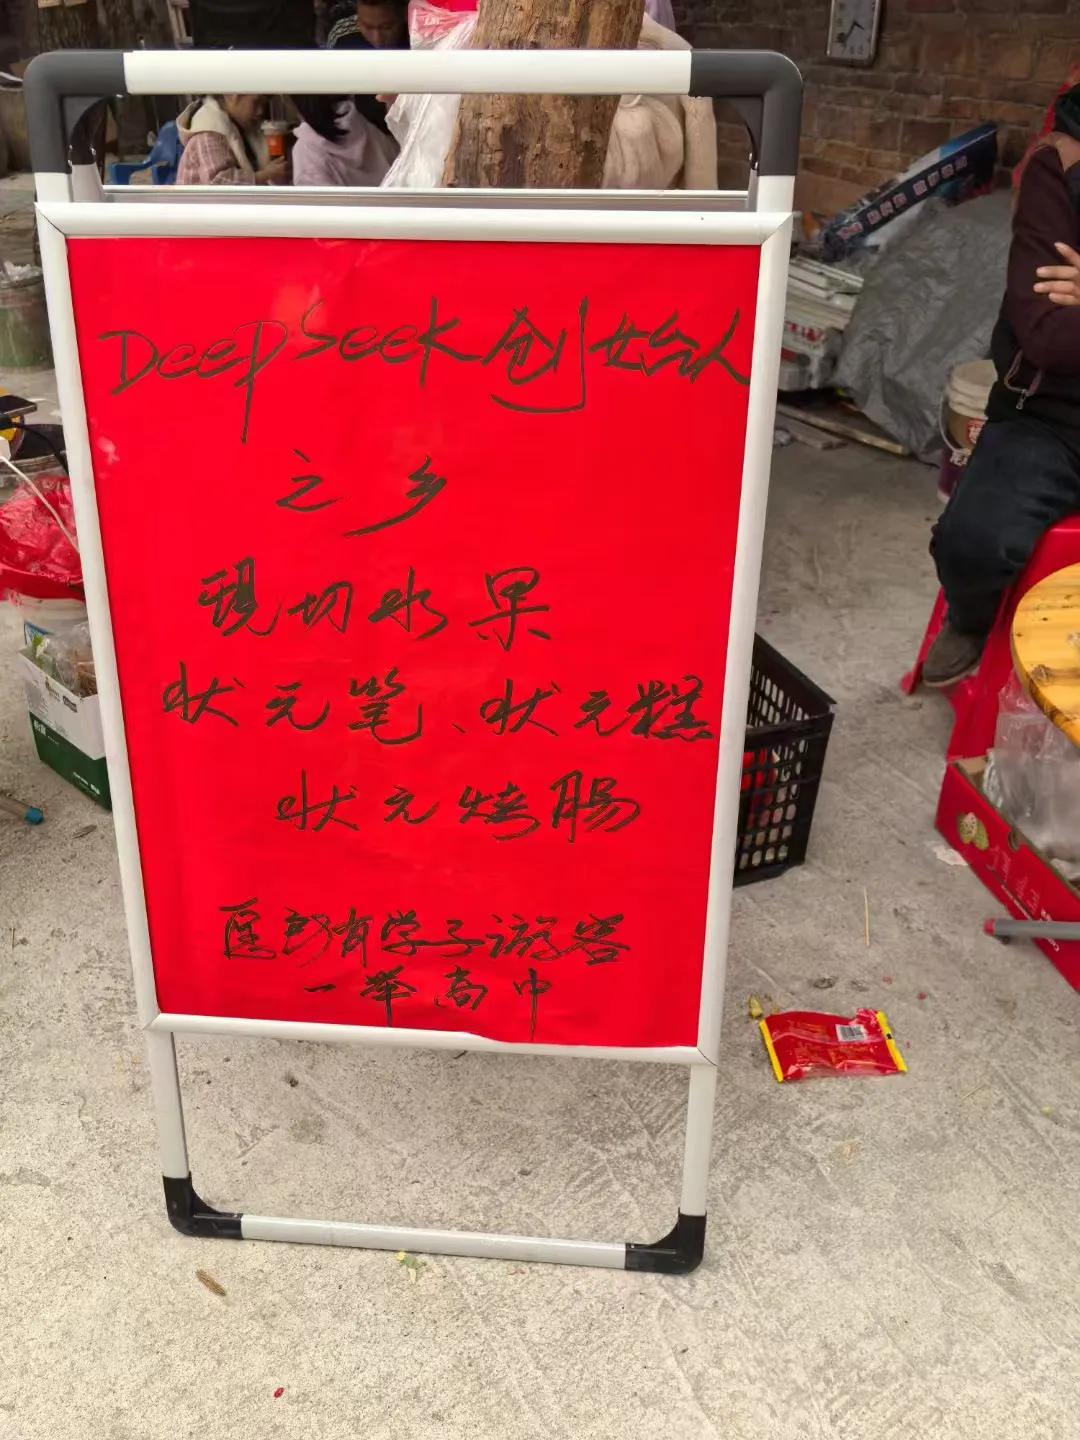 DeepSeek创始人
之乡
现切水果
状元笔、状元糕
状元烤肠
愿所有学子游客
一举高中